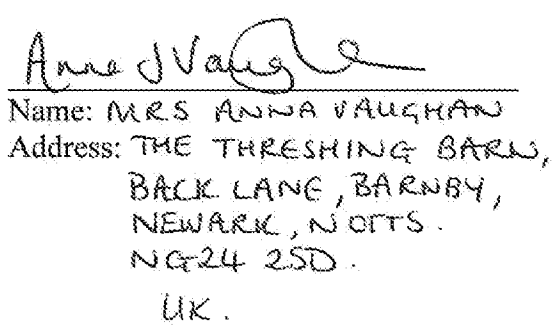 Anna J Vaugh
Name: MRS ANNA VAUGHAN
Address: THE THRESHING BARN,
BACK LANE, BARNBY,
NEWARK, NOTTS.
NG24 2SD.
UK.